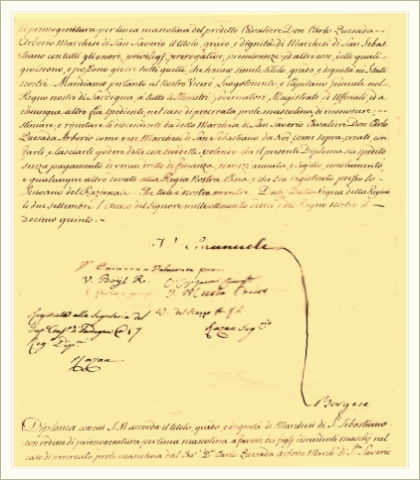 di primogenitura per linea mascolina del predetto Cavaliere Don Carlo Quesada
Arborio Marchese di San Saverio il titolo, grado, e dignità di Marchesi di San Sebas
tiano con tutti gli onori, privilegj, prerogative, preminenze ed altre cose, delle quali
godono, e possono godere tutti quelli che hanno simile titolo grado e dignità ne' Stati
nostri. Mandiamo pertanto al nostro Vicerè, Luogotenente, e Capitano Generale nel
Regno nostro di Sardegna, a tutti li Ministri, Governatore, Magistrati, ed Uffiziali, ed a
chiunque altro fia spediente, nel caso di procreata prole mascolina di riconoscere
stimare e riputare li discendenti da detto Marchese di San Saverio Cavaliere Don Carlo
Quesada Arborio come veri Marchesi di San Sebastiano da Noi come sopra creati con
farli, e lasciarli godere delle cose suddette, volendo che il presente Diploma sia spedito
senza pagamento di dritto di finanza, mezz'annata, e Sigillo, emolumento,
e qualunque altro dovuto alla Regia Nostra Cassa, e che sia registrato presso lo
Scrivano del Razionale. Che tale è nostra mente. Dat. Dalla Vigna della Regina
li due settembre l'anno del Signore mille ottocento sedici e del Regno nostro il
Decimo quinto.
V. Emanuele
V. Boyl R.
Registrato alla Segreteria del
Reg. Dip.
Razan Seg.
Razan
Borgese
Diploma con cui S.M. accorda il titolo, grado e dignità di Marchesi di S. Sebastiano
con ordine di primogenitura per linea mascolina a favore dei figlj discendenti maschj nel
caso di procreata prole mascolina dal Cav. D. Carlo Quesada Arborio March. di S.n Saverio